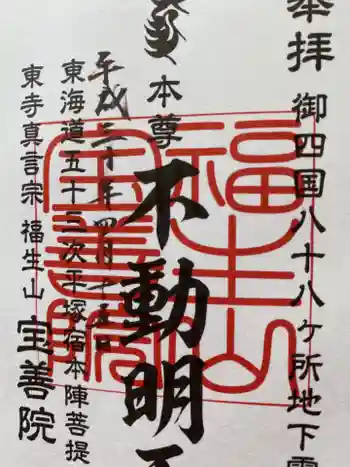 奉拝
御四国八十八ヶ所地下霊
本尊
不動明王
平成三十年四月十五日
東海道五十三次平塚宿本陣菩提
東寺真言宗 福生山 宝善院
福生山
宝善院